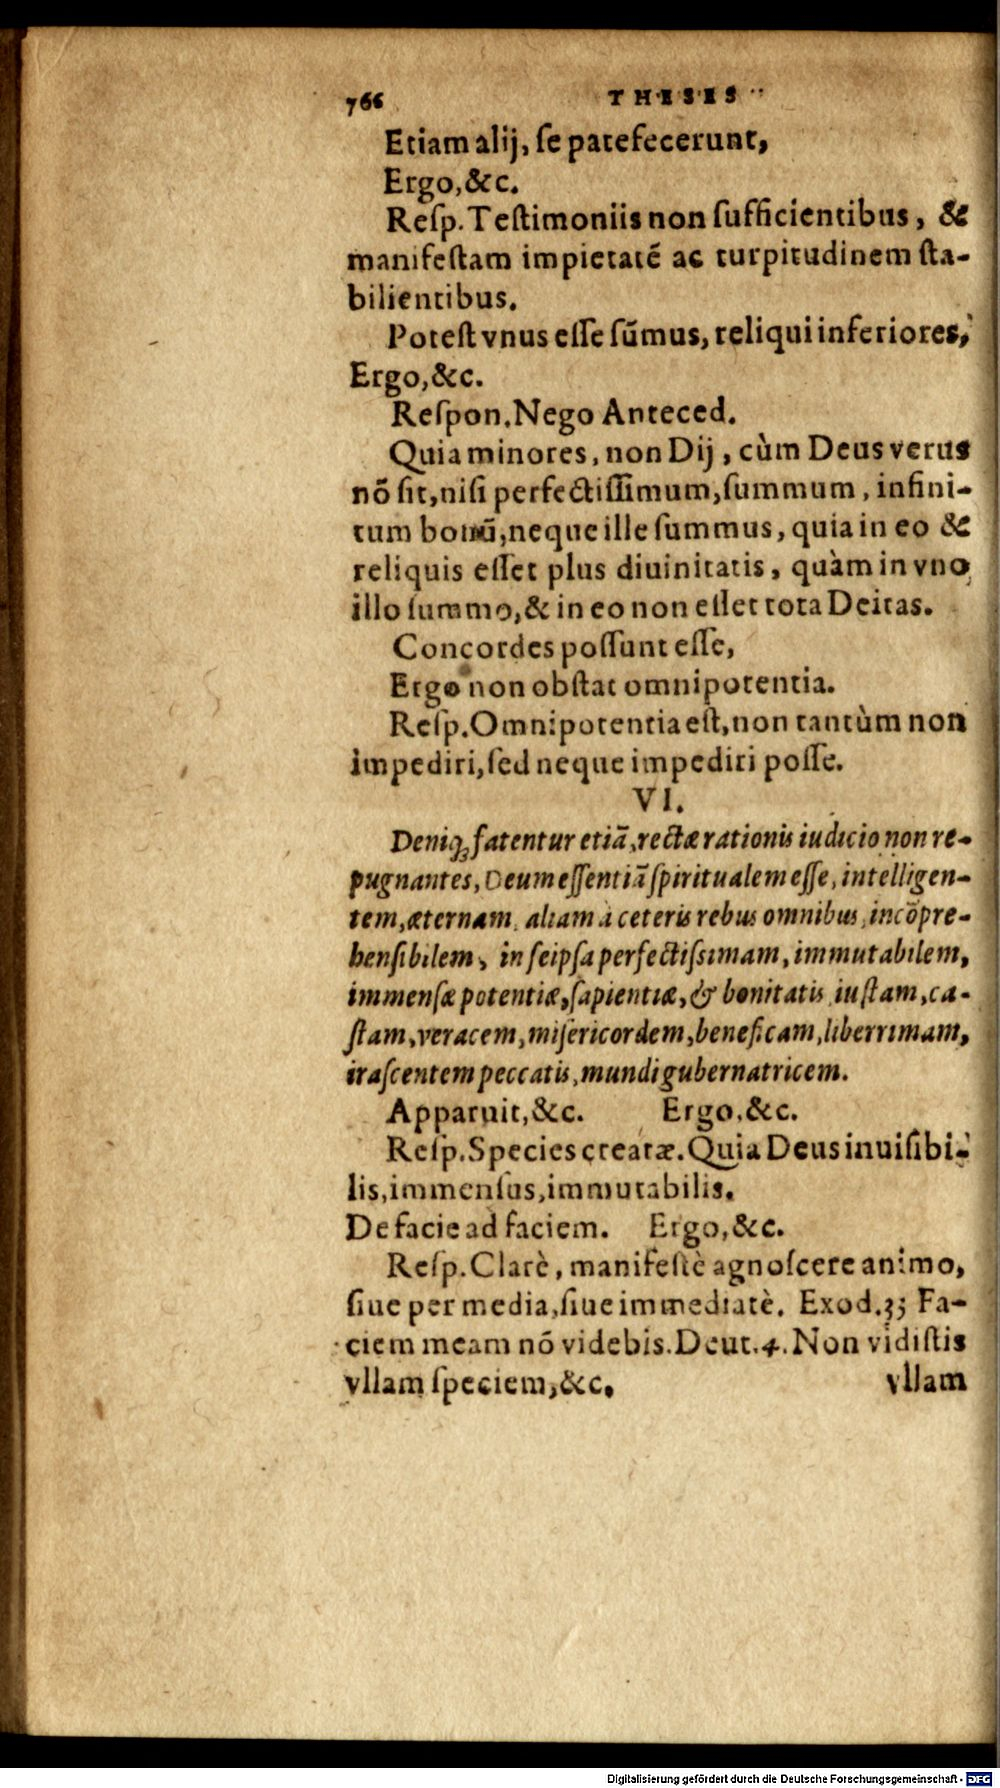 766 THESES
Etiam alij, ſe patefecerunt,
Ergo, &c.
Reſp. Teſtimoniis non ſufficientibus, &
manifeſtam impietatē ac turpitudinem ſta-
bilientibus.
Poteſt vnus eſſe ſūmus, reliqui inferiores,
Ergo, &c.
Reſpon. Nego Anteced.
Quia minores, non Dij, cùm Deus verus
nō ſit, niſi perfectiſſimum, ſummum, infini-
tum bonū, neque ille ſummus, quia in eo &
reliquis eſſet plus diuinitatis, quàm in vno
illo ſummo, & in eo non eſſet tota Deitas.
Concordes poſſunt eſſe,
Ergo non obſtat omnipotentia.
Reſp. Omnipotentia eſt, non tantùm non
impediri, ſed neque impediri poſſe.
VI.
Deniq; fatentur etiā, rectæ rationis iudicio non re-
pugnantes, Deum eſſentiā ſpiritualem eſſe, intelligen-
tem, æternam, aliam à ceteris rebus omnibus, incōpre-
henſibilem, in ſeipſa perfectiſsimam, immutabilem,
immenſæ potentiæ, ſapientiæ, & bonitatis, iuſtam, ca-
ſtam, veracem, miſericordem, beneficam, liberrimam,
iraſcentem peccatis, mundi gubernatricem.
Apparuit, &c. Ergo, &c.
Reſp. Species creatæ. Quia Deus inuiſibi-
lis, immenſus, immutabilis.
De facie ad faciem. Ergo, &c.
Reſp. Clarè, manifeſtè agnoſcere animo,
ſiue per media, ſiue immediatè. Exod. 33 Fa-
ciem meam nō videbis. Deut. 4. Non vidiſtis
vllam ſpeciem, &c. vllam
Digitalisierung gefördert durch die Deutsche Forschungsgemeinschaft - DFG